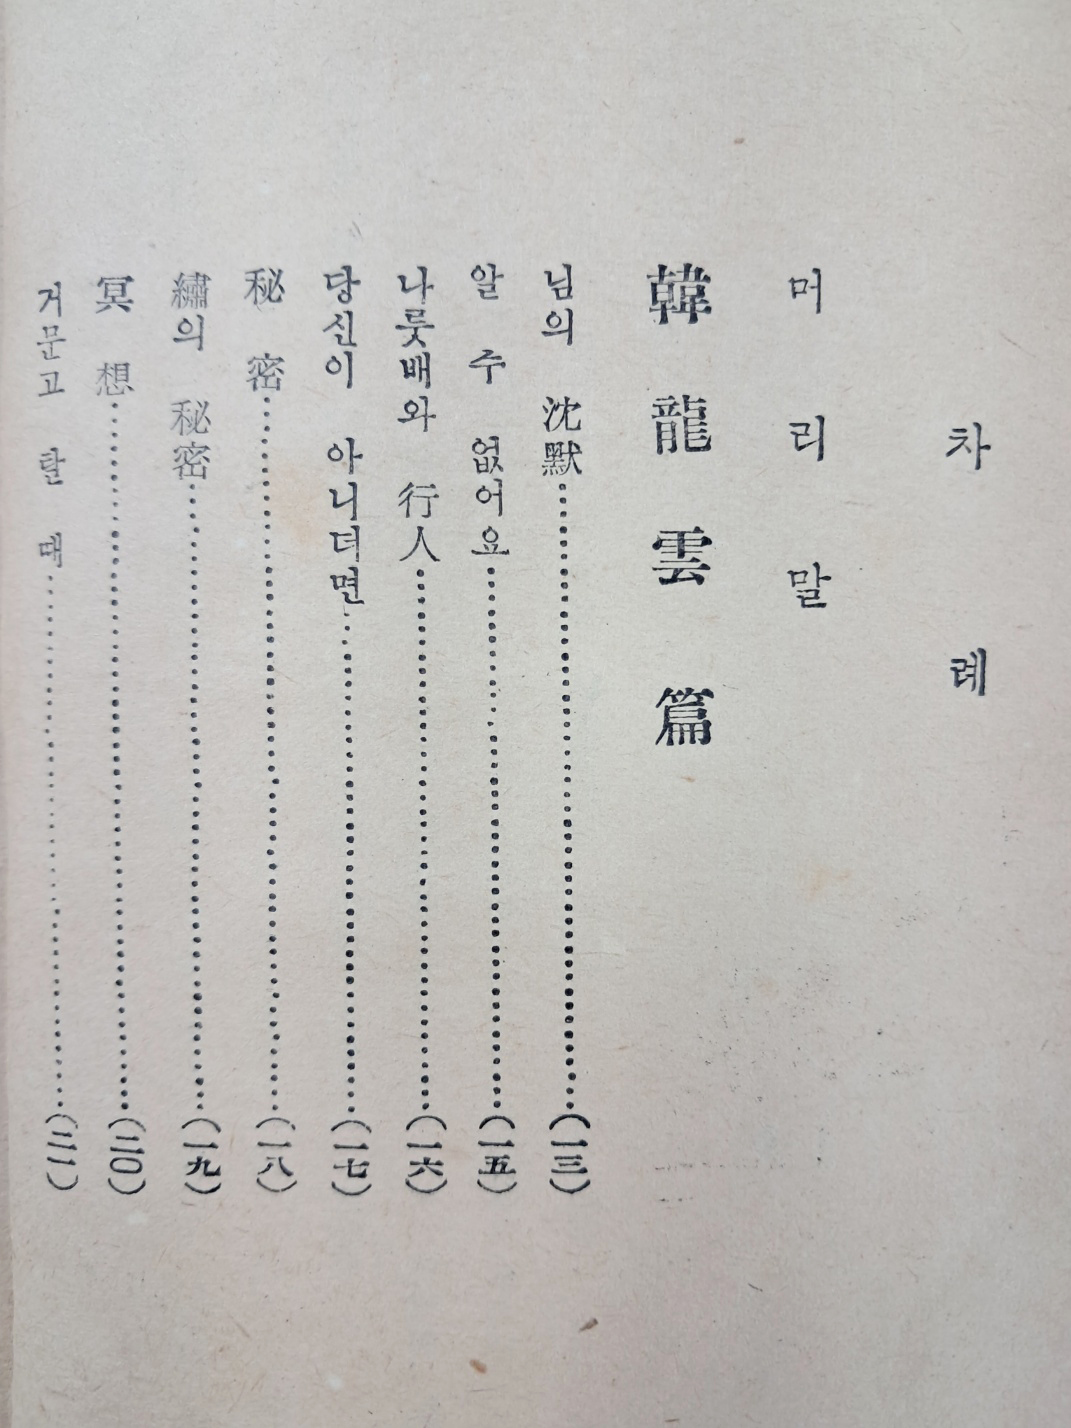 차례
머리말
韓龍雲篇
님의 沈默……………………(一三)
알 수 없어요……………………(一五)
나룻배와 行人……………………(一六)
당신이 아니더면……………………(一七)
秘密……………………(一八)
繡의 秘密……………………(一九)
冥想……………………(二〇)
거문고 탈 때……………………(二一)